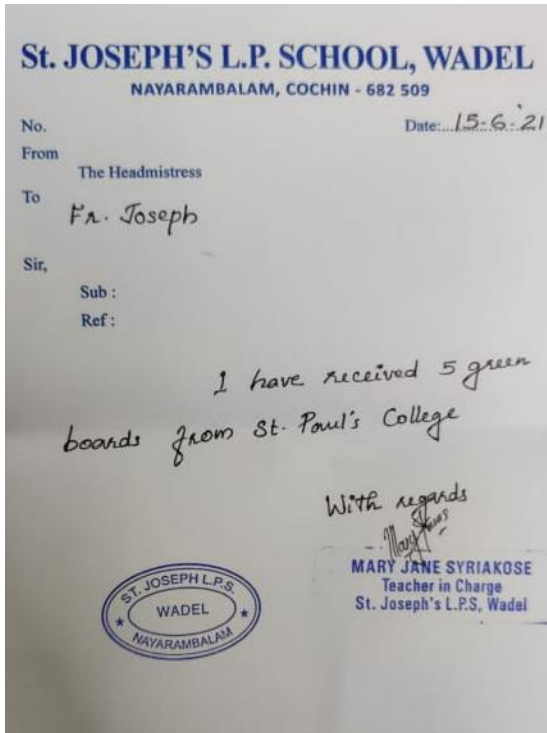 St. JOSEPH'S L.P. SCHOOL, WADEL
NAYARAMBALAM, COCHIN - 682 509
No.
Date:....15-6-21
From
The Headmistress
To
Fr. Joseph
Sir,
Sub :
Ref :
I have received 5 green
boards from St. Paul's College
With regards
MARY JANE SYRIAKOSE
Teacher in Charge
St. Joseph's L.P.S, Wadel
ST. JOSEPH L.P.S.
WADEL
NAYARAMBALAM